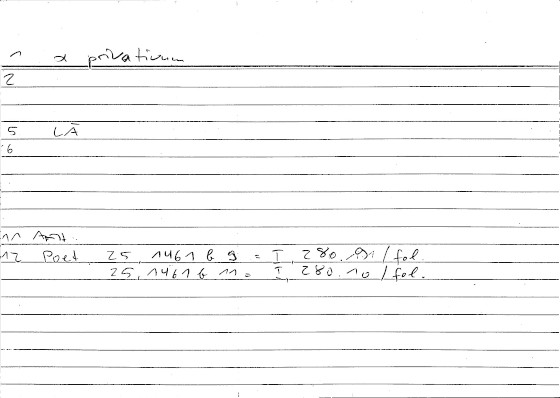 1 α privativum
2
5 LĀ
6
11 Arist.
12 Poet. 25, 1461 b 9 = I, 280. 9 / fol.
25, 1461 b 11 = I, 280. 10 / fol.